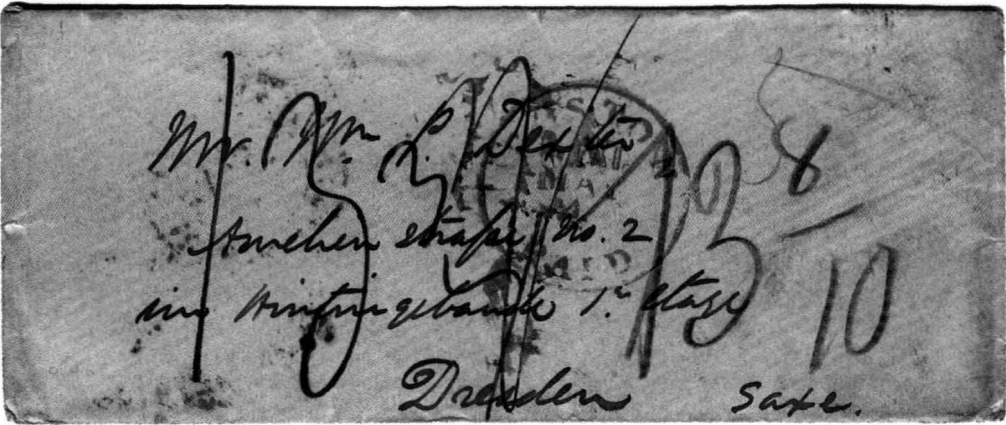 Mr. Wm P. Dexter
Amelien straße No. 2
im Hintergebaude 1r. Etage
Dresden Saxe.
13
13
8
10
PAID